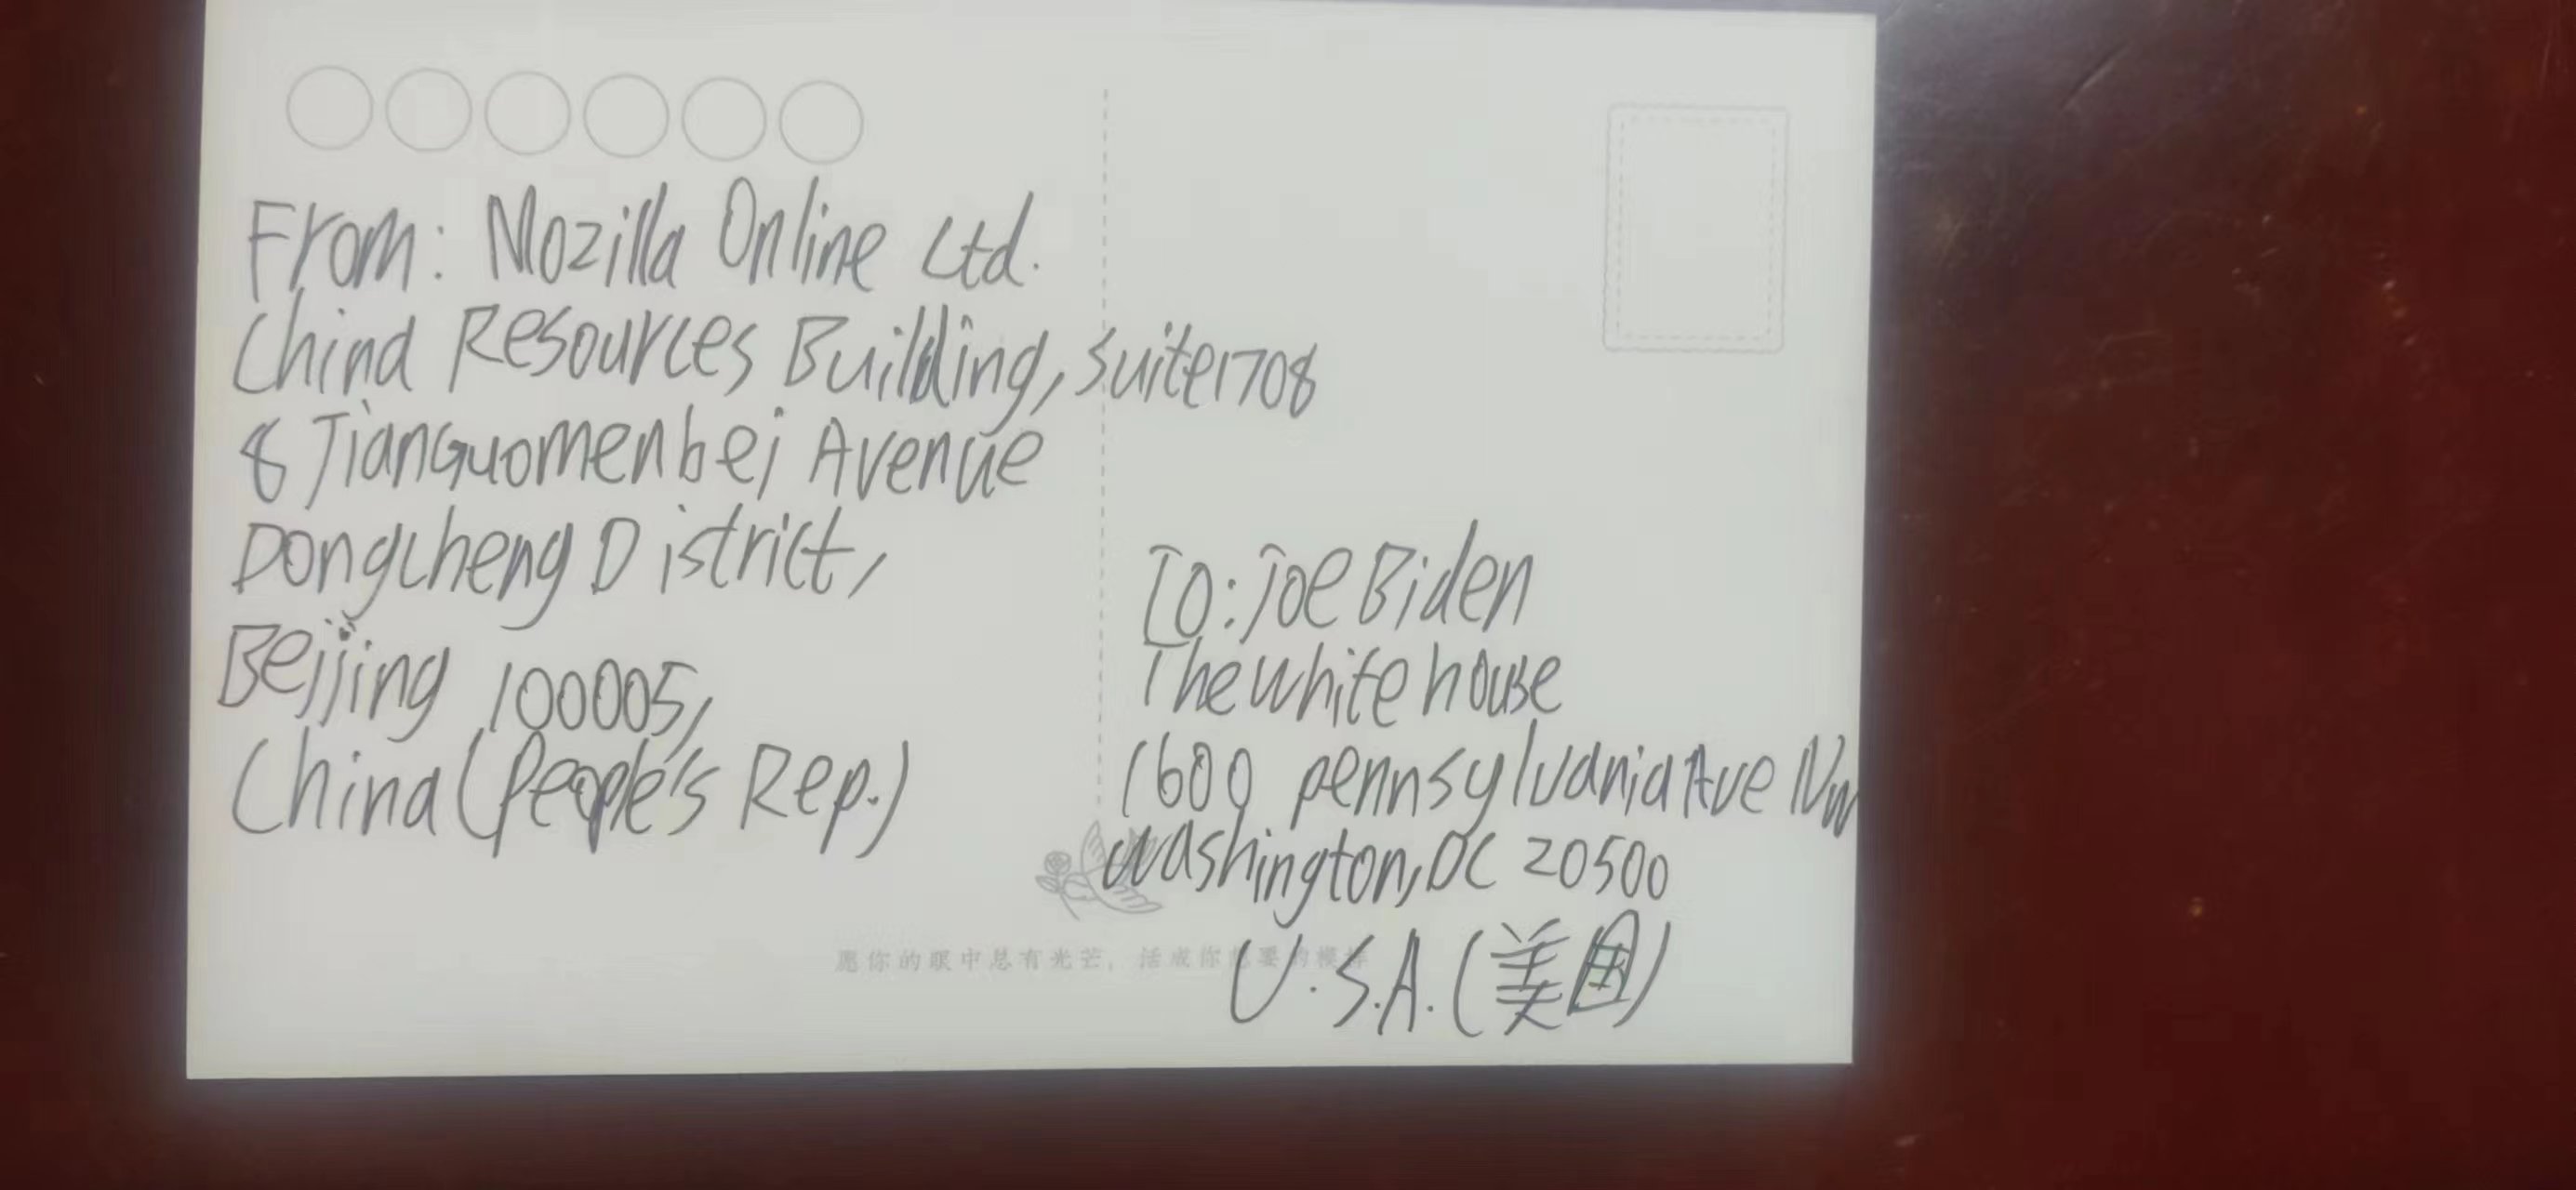 From: Mozilla Online Ltd.
China Resources Building, suite1708
8 JianGuomenbei Avenue
Dongcheng District,
Beijing 100005,
China (People's Rep.)
To: Joe Biden
The white house
1600 pennsylvania Ave NW
Washington, DC 20500
U.S.A. (美国)
愿你的眼中总有光芒，活成你想要的模样